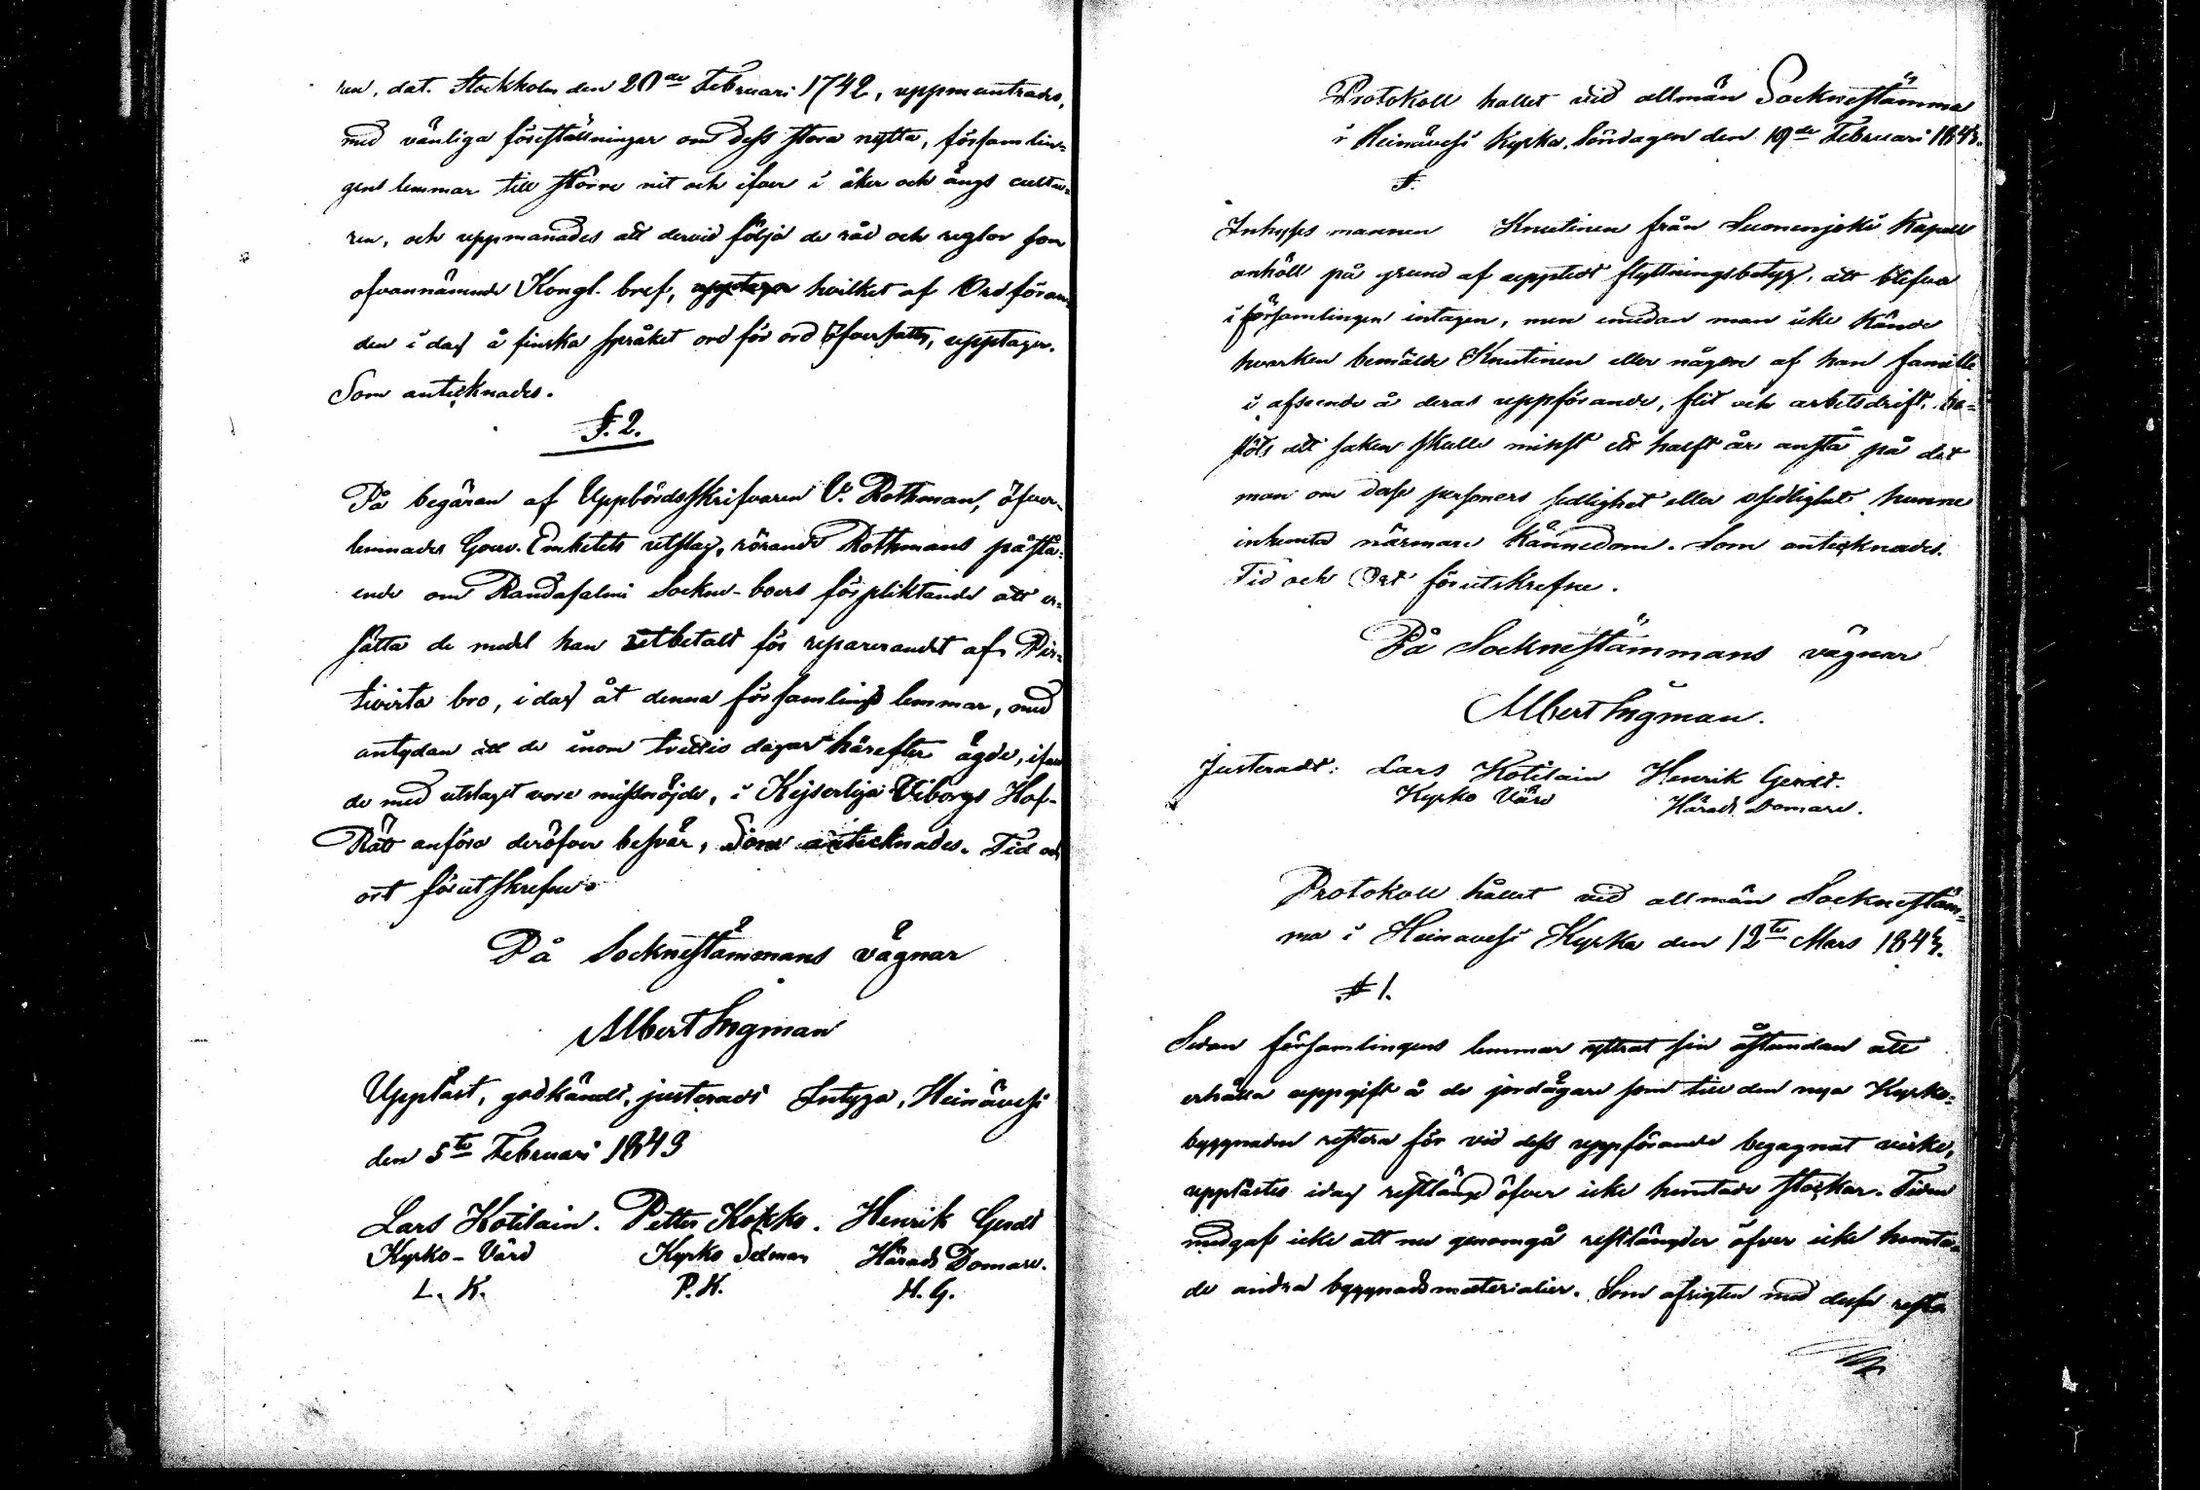 ren, dat. Stockholm den 20de Februari 1742, uppmuntrades,
med vänliga föreställningar om dess stora nytta, församlin=
gens lemmar till större nit och ifver i åker och ängs cultu=
ren, och uppmanades att dervid följa de råd och reglor som
ofvannämnde Kongl. bref, hvilket af Ordföran=
den i dag å finska språket ord för ord öfversattes, upptager.
Som antecknades.
§. 2.
På begäran af Uppbördsskrifvaren V. Rothman, öfver-
lemnades Gouv. Embetets utslag, rörande Rothmans påstå=
ende om Randasalmi Sockne-boers förpliktande att er=
sätta de medel han utbetalt för reparerandet af Pir=
tivirta bro, i dag åt denna församlings lemmar, med
antydan att de inom trettio dagar härefter ägde, ifall
de med utslaget vore missnöjde, i Kejserliga Viborgs Hof-
Rätt anföra deröfver besvär, Som antecknades. Tid och
ort förutskrefne.
På Sockenstämmans vägnar
Albert Ingman
Uppläst, godkändt, justeradt Intyga, Heinävesi
den 5te Februari 1843
Lars Kotilain. Petter Kokko. Henrik Gerdt
Kyrko-Värd Kyrko Häradt Domare.
L. K. P. K. H. G.
Protokoll hållet vid allmän Sockenstämma
i Heinävesi Kyrka Söndagen den 19de Februari 1843.
§.
Inhyses mannen Knutinen från Suonenjoki Kapell
anhöll på grund af uppteedt flyttningsbetyg, att blifva
i församlingen intagen, men emedan man icke kände
hvarken bemälde Knutinen eller någon af hans famille
i afseende å deras uppförande, flit och arbetsdrift, be=
slöts att saken skulle minst ett halft år anstå på det
man om dessa personers sedlighet eller osedlighet kunne
inhemta närmare kännedom. Som antecknades.
Tid och Ort förutskrefne.
På Sockenstämmans vägnar
Albert Ingman.
Justeradt: Lars Kotilain Henrik Gerdt.
Kyrko Värd Härads Domare.
Protokoll hållet vid allmän Sockenstäm=
ma i Heinävesi Kyrka den 12te Mars 1843.
§ 1.
Sedan församlingens lemmar yttrat sin åstundan att
erhålla uppgift å de jordägare som till den nya Kyrko=
byggnaden restera för vid dess uppförande begagnat virke,
upplästes idag restlängd öfver icke hemtade stockar. Tiden
medgaf icke att nu genomgå restlängder öfver icke hemta=
de andra byggnadsmaterialier. Som afsigten med dessa